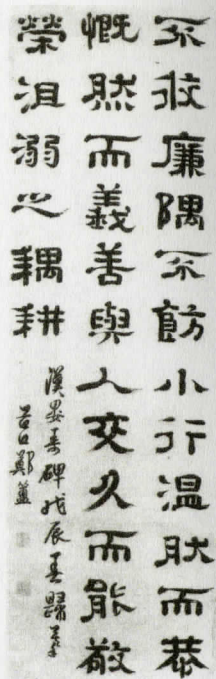 不收廉隅不飭小行溫然而恭
慨然而義善與人交久而能敬
榮沮溺之耦耕
漢婁壽碑戊辰夏
谷口鄭簠